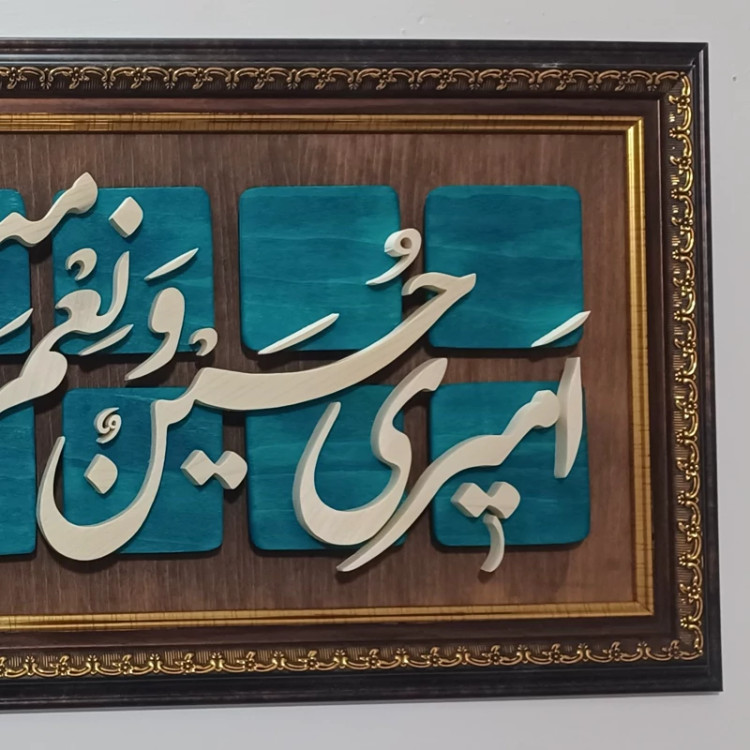 اَمیرِی حُسَیْنٌ وَ نِعْمَ